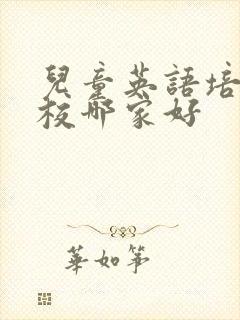 兒童英語培
校哪家好
華如筝